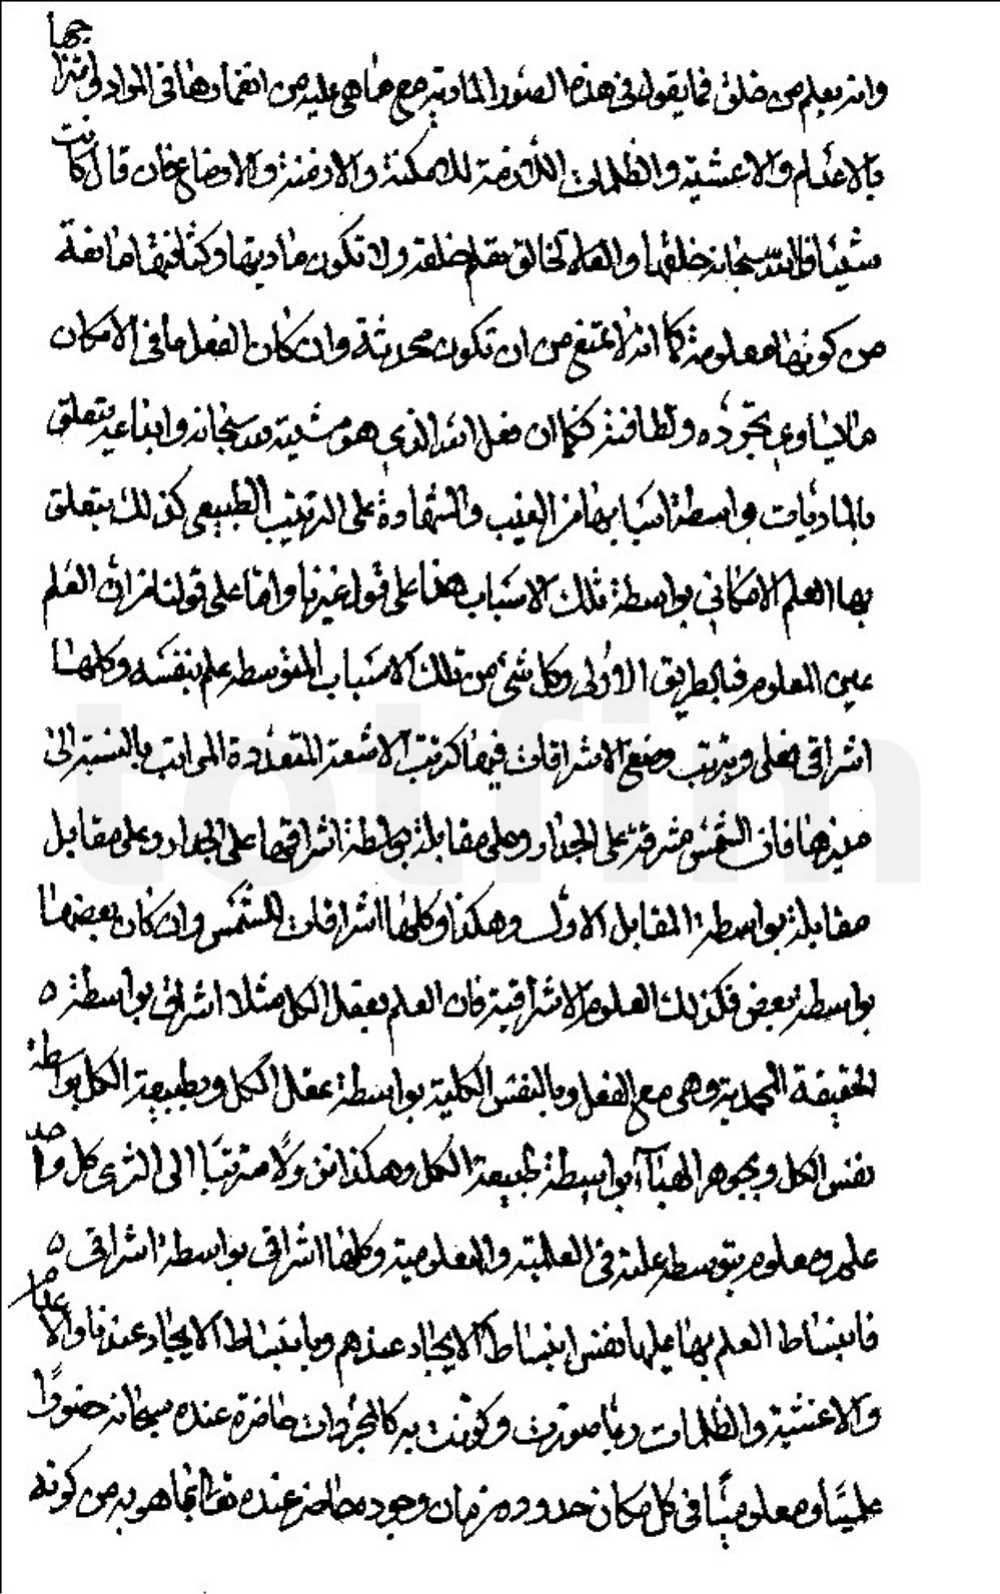 وانه يعلم من خلق فما يقول في هذه الصور المادية مع ما هي عليه من انغمارها في المواد وامتزاجها
بالاعدام والاغشية والظلمات اللازمة للامكنة والازمنة والاوضاع فان قال كانت
شيئا فالله سبحانه خلقها والعلة الخالق يعلم خلقه ولا تكون ماديتها وكثافتها مانعة
من كونها معلومة كما انه لا يمتنع من ان تكون محدثة وان كان الفعل ما في الامكان
ما يساوي تجرده ولطافته فكما ان فعل الله الذي هو مشيته سبحانه وابداعه يتعلق
بالماديات بواسطة اسبابها من الغيب والشهادة على الترتيب الطبيعي كذلك يتعلق
بها العلم الامكاني بواسطة تلك الاسباب هذا على قول غيرنا واما على قولنا من ان العلم
عين المعلوم فبالطريق الاولى وكل شيء من تلك الاسباب المتوسطة علم بنفسه وكلها
اشراقي فعلي وترتب وضع الاشراقات فيها كترتب الاشعة المتعددة المراتب بالنسبة الى
منيرها فان الشمس مشرقة على الجدار وعلى مقابله بواسطة اشراقها على الجدار وعلى مقابل
مقابله بواسطة المقابل الاول وهكذا وكلها اشراقات للشمس وان كان بعضها
بواسطة بعض فكذلك العلوم الاشراقية فان العلم بعقل الكل مثلا اشراقي بواسطة
الحقيقة المحمدية وهي مع الفعل وبالنفس الكلية بواسطة عقل الكل وبطبيعة الكل بواسطة
نفس الكل وبجوهر الهباء بواسطة طبيعة الكل وهكذا نزولا مترتبا الى الثرى كل واحد
علم ومعلوم بتوسط علته في العلمية والمعلومية وكلها اشراقي بواسطة اشراقي
فانبساط العلم بها عليها نفس انبساط الايجاد عندهم وبانبساط الايجاد عندنا والاعدام
والاغشية والظلمات ربما صورت وكونت به كالمجردات حاضرة عنده سبحانه حضورا
علميا ومعلوميا في كل مكان حدوده وزمان وجوده حاضر عنده تعالى بما هو به من كونه